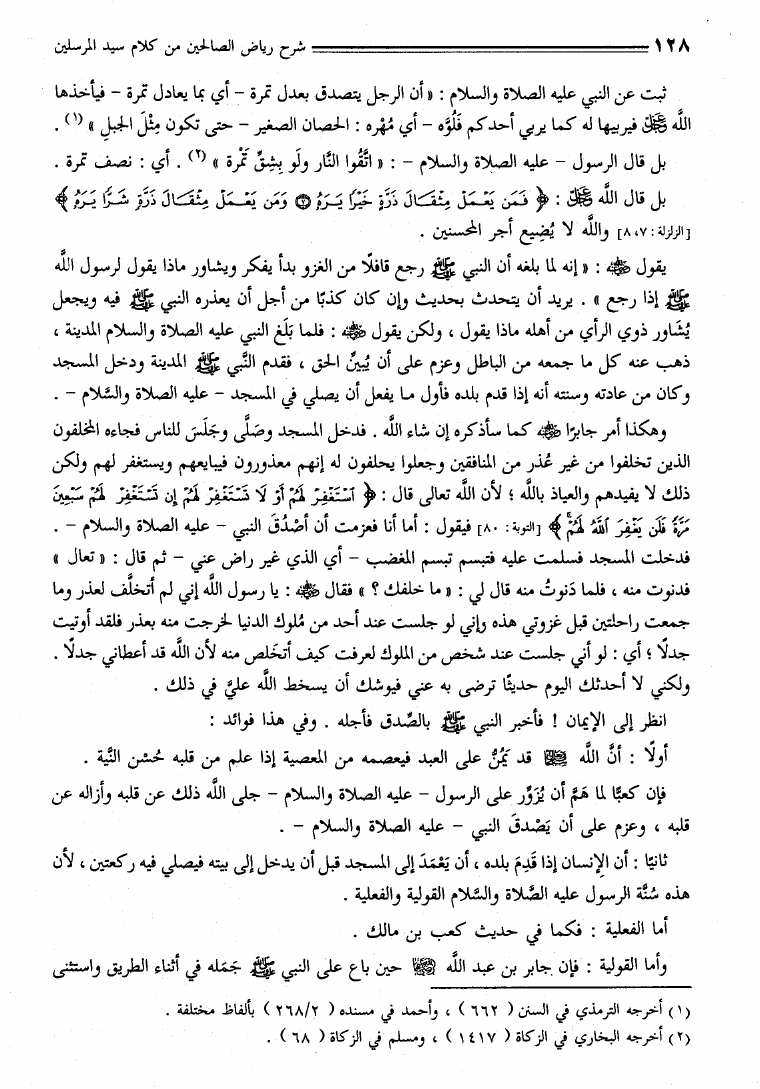 ١٢٨ شرح رياض الصالحين من كلام سيد المرسلين
ثبت عن النبي عليه الصلاة والسلام : « أن الرجل يتصدق بعدل تمرة – أي بما يعادل تمرة – فيأخذها
اللَّه ﷿ فيربيها له كما يربي أحدكم فَلُوَّه – أي مُهْره : الحصان الصغير – حتى تكون مِثْلَ الجبلِ » (١) .
بل قال الرسول – عليه الصلاة والسلام – : « اتَّقُوا النَّار ولَو بِشِقِّ تَمْرة » (٢) . أي : نصف تمرة .
بل قال اللَّه ﷿ : ﴿ فَمَن يَعْمَلْ مِثْقَالَ ذَرَّةٍ خَيْرًا يَرَهُ ۝ وَمَن يَعْمَلْ مِثْقَالَ ذَرَّةٍ شَرًّا يَرَهُ ﴾
[الزلزلة : ٧، ٨] واللَّه لا يُضِيع أجر المحسنين .
يقول ﵁ : « إنه لما بلغه أن النبي ﷺ رجع قافلًا من الغزو بدأ يفكر ويشاور ماذا يقول لرسول اللَّه
ﷺ إذا رجع » . يريد أن يتحدث بحديث وإن كان كذبًا من أجل أن يعذره النبي ﷺ فيه ويجعل
يُشَاور ذوي الرأي من أهله ماذا يقول ، ولكن يقول ﵁ : فلما بَلَغ النبي عليه الصلاة والسلام المدينة ،
ذهب عنه كل ما جمعه من الباطل وعزم على أن يُبيِّنَ الحق ، فقدم النَّبي ﷺ المدينة ودخل المسجد
وكان من عادته وسنته أنه إذا قدم بلده فأول ما يفعل أن يصلي في المسجد – عليه الصلاة والسَّلام – .
وهكذا أمر جابرًا ﵁ كما سأذكره إن شاء اللَّه . فدخل المسجد وصَلَّى وجَلَسَ للناس فجاءه المخلفون
الذين تخلفوا من غير عُذر من المنافقين وجعلوا يحلفون له إنهم معذورون فيبايعهم ويستغفر لهم ولكن
ذلك لا يفيدهم والعياذ باللَّه ؛ لأن اللَّه تعالى قال : ﴿ ٱسْتَغْفِرْ لَهُمْ أَوْ لَا تَسْتَغْفِرْ لَهُمْ إِن تَسْتَغْفِرْ لَهُمْ سَبْعِينَ
مَرَّةً فَلَن يَغْفِرَ ٱللَّهُ لَهُمْ ﴾ [التوبة : ٨٠] فيقول : أما أنا فعزمت أن أصْدُقَ النبي – عليه الصلاة والسلام – .
فدخلت المسجد فسلمت عليه فتبسم تبسم المغضب – أي الذي غير راض عني – ثم قال : « تعال »
فدنوت منه ، فلما دَنوتُ منه قال لي : « ما خلفك ؟ » فقال ﵁ : يا رسول اللَّه إني لم أتخلَّف لعذر وما
جمعت راحلتين قبل غزوتي هذه وإني لو جلست عند أحد من مُلوك الدنيا لخرجت منه بعذر فلقد أوتيت
جدلًا ؛ أي : لو أني جلست عند شخص من الملوك لعرفت كيف أتخَلص منه لأن اللَّه قد أعطاني جدلًا .
ولكني لا أحدثك اليوم حديثًا ترضى به عني فيوشك أن يسخط اللَّه عليَّ في ذلك .
انظر إلى الإيمان ! فأخبر النبي ﷺ بالصِّدق فأجله . وفي هذا فوائد :
أولًا : أنَّ اللَّه ﷾ قد يَمُنُّ على العبد فيعصمه من المعصية إذا علم من قلبه حُسْن النَّية .
فإن كعبًا لما هَمَّ أن يُزَوِّر على الرسول – عليه الصلاة والسلام – جلى اللَّه ذلك عن قلبه وأزاله عن
قلبه ، وعزم على أن يَصْدقَ النبي – عليه الصلاة والسلام – .
ثانيًا : أن الإنسان إذا قَدِمَ بلده ، أن يَعْمَدَ إلى المسجد قبل أن يدخل إلى بيته فيصلي فيه ركعتين ، لأن
هذه سُنَّة الرسول عليه الصَّلاة والسَّلام القولية والفعلية .
أما الفعلية : فكما في حديث كعب بن مالك .
وأما القولية : فإن جابر بن عبد اللَّه ﵄ حين باع على النبي ﷺ جَمَله في أثناء الطريق واستثنى
(١) أخرجه الترمذي في السنن ( ٦٦٢ ) ، وأحمد في مسنده ( ٢٦٨/٢ ) بألفاظ مختلفة .
(٢) أخرجه البخاري في الزكاة ( ١٤١٧ ) ، ومسلم في الزكاة ( ٦٨ ) .